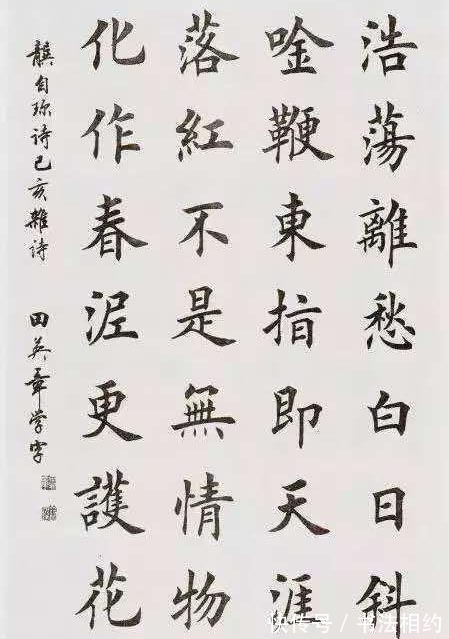 浩蕩離愁白日斜
唫鞭東指即天涯
落紅不是無情物
化作春泥更護花
龔自珎诗己亥雜诗
田英章学字
快传号 / 书法相约